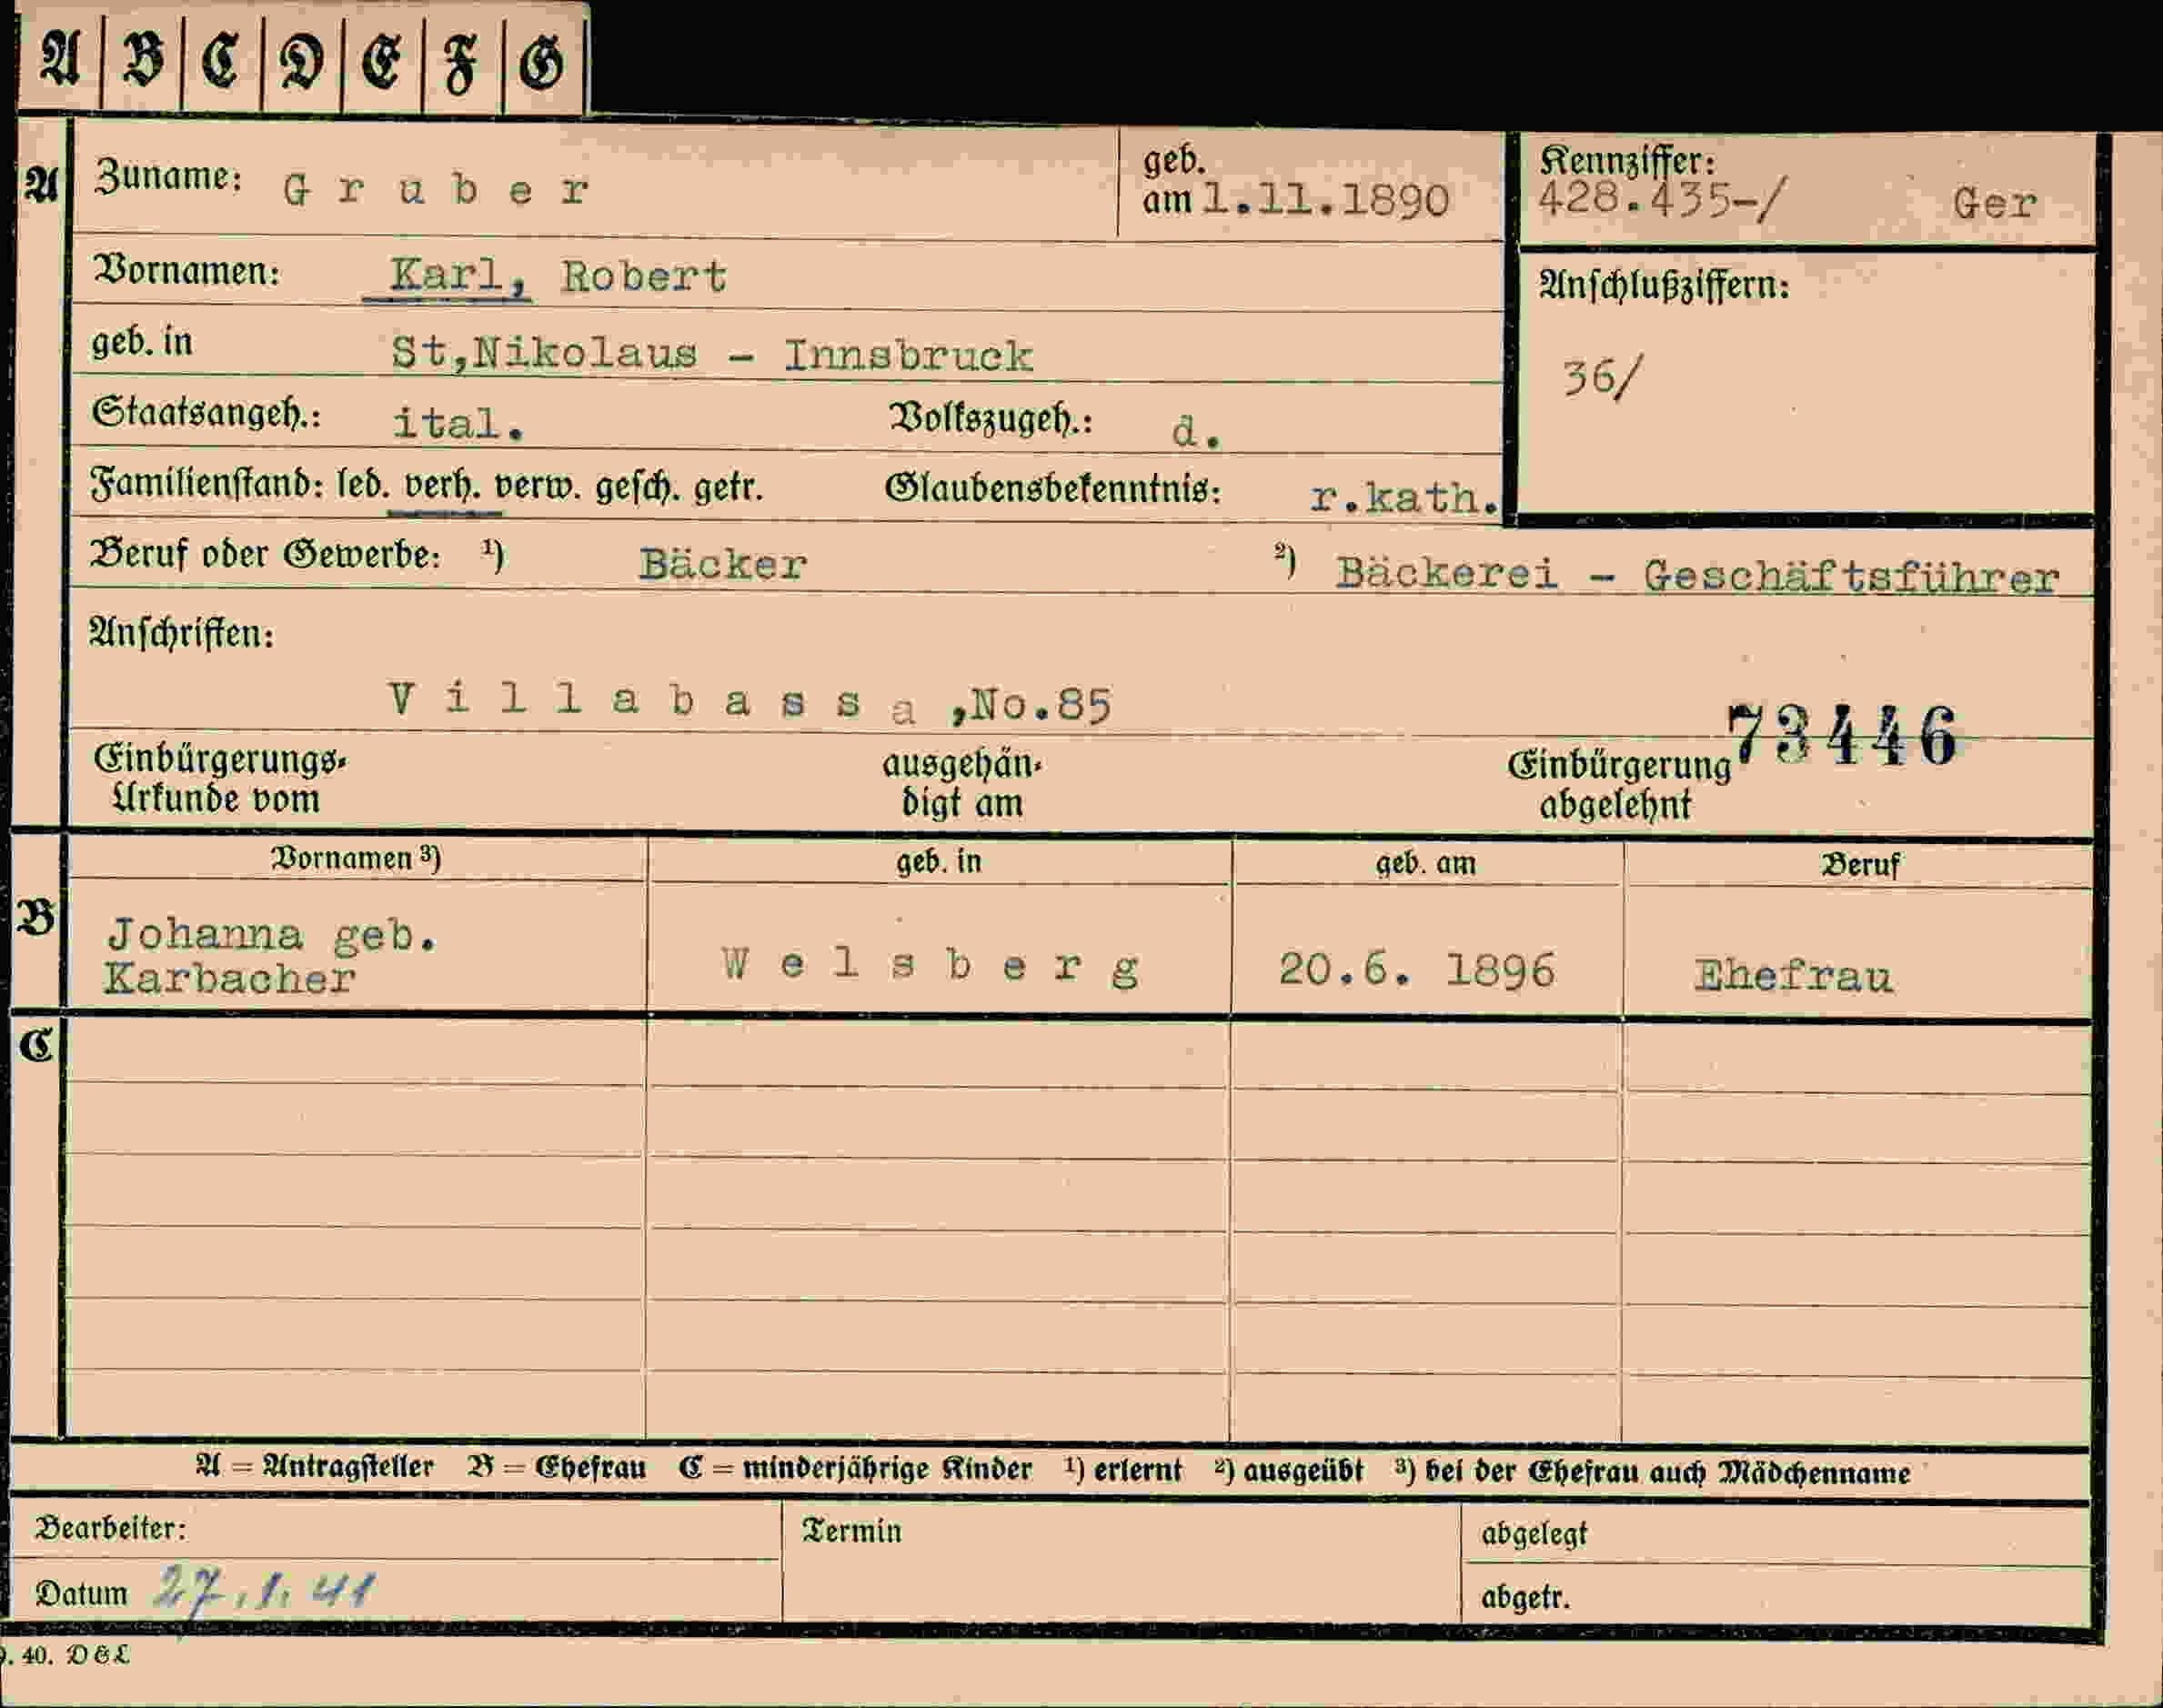 A B C D E F G
A Zuname: Gruber geb. am 1.11.1890 Kennziffer: 428.435-/ Ger
Vornamen: Karl, Robert Anschlußziffern:
geb. in St,Nikolaus - Innsbruck 36/
Staatsangeh.: ital. Volkszugeh.: d.
Familienstand: led. verh. verw. gesch. getr. Glaubensbekenntnis: r.kath.
Beruf oder Gewerbe: ¹) Bäcker ²) Bäckerei - Geschäftsführer
Anschriften:
Villabassa,No.85
73446
Einbürgerungs- ausgehän- Einbürgerung
Urkunde vom digt am abgelehnt
Vornamen ³) geb. in geb. am Beruf
B Johanna geb.
Karbacher Welsberg 20.6. 1896 Ehefrau
C
A = Antragsteller B = Ehefrau C = minderjährige Kinder ¹) erlernt ²) ausgeübt ³) bei der Ehefrau auch Mädchenname
Bearbeiter: Termin abgelegt
Datum 27.1.41 abgetr.
. 40. D & L